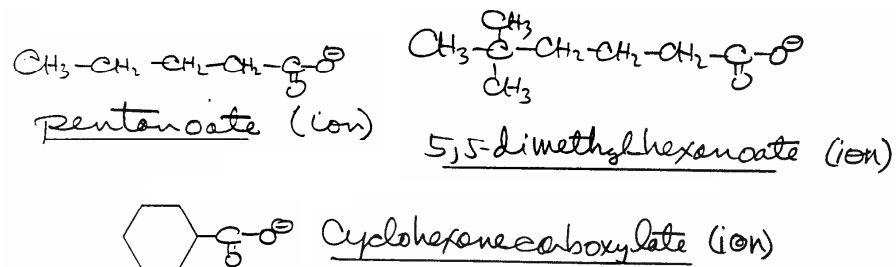 CH3-CH2-CH2-CH2-C-O⊖
O
pentanoate (ion)
CH3
CH3-C-CH2-CH2-CH2-C-O⊖
CH3 O
5,5-dimethylhexanoate (ion)
C-O⊖
O
Cyclohexanecarboxylate (ion)